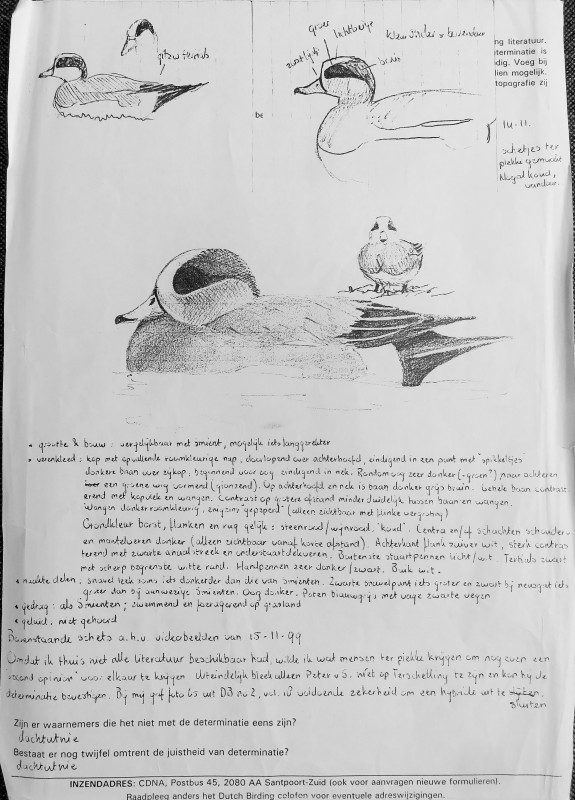 groen
lichtbeige
zwart
bruin
ng literatuur.
terminatie is
dig. Voeg bij
lien mogelijk.
topografie zij
be
14-11.
schetsjes ter
plekke gemaakt
Nogal koud,
vandaar
• grootte & bouw: vergelijkbaar met smient, mogelijk iets langgerekter
• verenkleed: kop met opvallende roomkleurige kap, doorlopend over achterhoofd, eindigend in een punt met "spikkeltjes"
donkere baan over zijkop, beginnend voor oog eindigend in nek. Rondom oog zeer donker (-groen?) naar achteren
een groene wig vormend (glanzend). Op achterhoofd en nek is baan donker grijs bruin. Gehele baan contrast-
erend met kapvlek en wangen. Contrast op grotere afstand minder duidelijk tussen baan en wangen.
Wangen donker roomkleurig, enigszins "gepeperd" (alleen zichtbaar met flinke vergroting)
Grondkleur borst, flanken en rug gelijk: steenrood/wijnrood, "koud". Centra en/of schachten schouder-
en mantelveren donker (alleen zichtbaar vanaf korte afstand). Achterkant flank zuiver wit, sterk contras
terend met zwarte anaalstreek en onderstaartdekveren. Buitenste staartpennen licht/wit. Tertials zwart
met scherp begrensde witte rand. Handpennen zeer donker/zwart. Buik wit.
• naakte delen: snavel leek soms iets donkerder dan die van Smienten. Zwarte snavelpunt iets groter en zwart bij neusgat iets
groter dan bij aanwezige Smienten. Oog donker. Poten blauwgrijs met vage zwarte vegen
• gedrag: als Smienten; zwemmend en foeragerend op grasland
• geluid: niet gehoord
Bovenstaande schets a.h.v. videobeelden van 15-11-99
Omdat ik thuis niet alle literatuur beschikbaar had, wilde ik wat mensen ter plekke krijgen om nog even een
'second opinion' voor elkaar te krijgen. Uiteindelijk bleek alleen Peter v S. niet op Terschelling te zijn en kon hij de
determinatie bevestigen. Bij mij gaf foto 65 uit DB no 2, vol. 13 voldoende zekerheid om een hybride uit te
sluiten
Zijn er waarnemers die het niet met de determinatie eens zijn?
dachtutnie
Bestaat er nog twijfel omtrent de juistheid van determinatie?
dachtutnie
INZENDADRES: CDNA, Postbus 45, 2080 AA Santpoort-Zuid (ook voor aanvragen nieuwe formulieren).
Raadpleeg anders het Dutch Birding colofon voor eventuele adreswijzigingen.